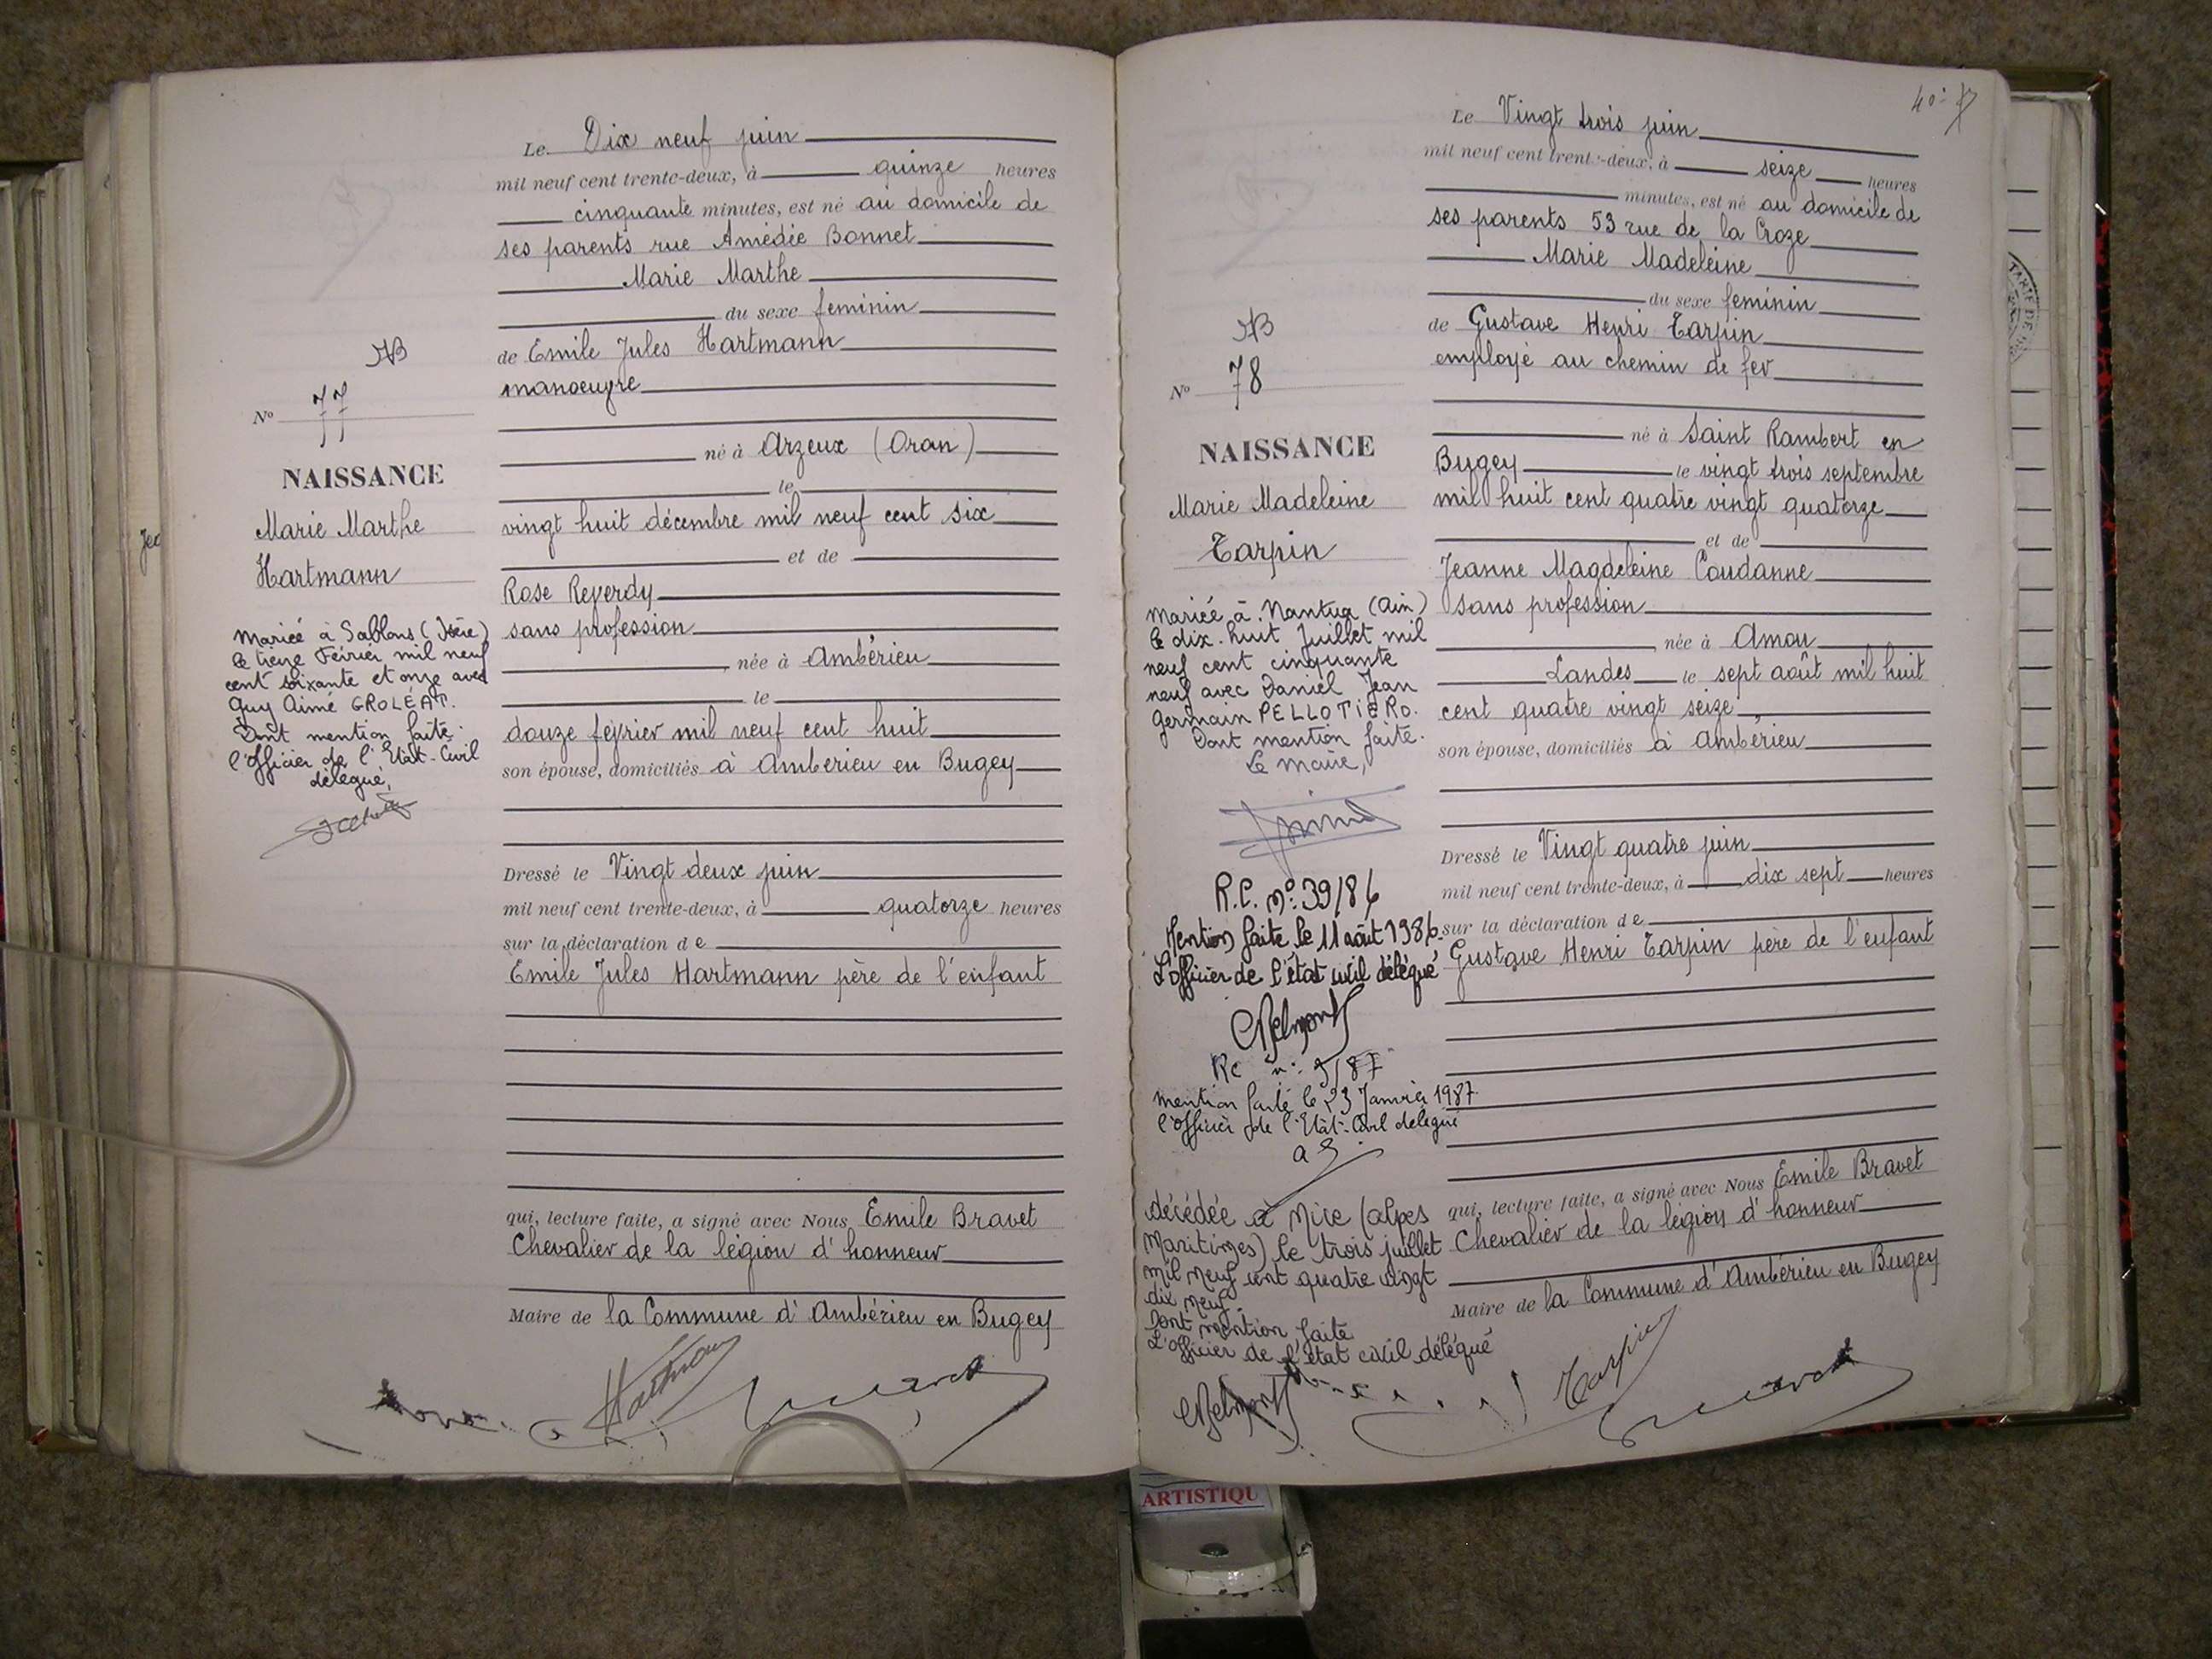 Le Dix neuf juin
mil neuf cent trente-deux, à quinze heures
cinquante minutes, est né au domicile de
ses parents rue Amédée Bonnet
Marie Marthe
du sexe feminin
de Emile Jules Hartmann
manoeuvre
né à Arzeux (Oran)
le
vingt huit décembre mil neuf cent six
et de
Rose Reverdy
sans profession
née à Ambérieu
le
douze fevrier mil neuf cent huit
son épouse, domiciliés à Ambérieu en Bugey
Dressé le Vingt deux juin
mil neuf cent trente-deux, à quatorze heures
sur la déclaration de
Emile Jules Hartmann père de l'enfant
qui, lecture faite, a signé avec Nous Emile Bravet
Chevalier de la légion d'honneur
Maire de la Commune d'Ambérieu en Bugey
Hartmann
AB
No 77
NAISSANCE
Marie Marthe
Hartmann
Mariée à Sablons (Isère)
le treize Février mil neuf
cent soixante et onze avec
Guy Aimé GROLÉAT.
Dont mention faite.
l'Officier de l'Etat-Civil
délégué,
Jea
40
Le Vingt trois juin
mil neuf cent trente-deux, à seize heures
minutes, est né au domicile de
ses parents 53 rue de la Croze
Marie Madeleine
du sexe feminin
de Gustave Henri Tarpin
employé au chemin de fer
né à Saint Rambert en
Bugey le vingt trois septembre
mil huit cent quatre vingt quatorze
et de
Jeanne Magdeleine Coudanne
sans profession
née à Amou
Landes le sept août mil huit
cent quatre vingt seize
son épouse, domiciliés à Ambérieu
Dressé le Vingt quatre juin
mil neuf cent trente-deux, à dix sept heures
sur la déclaration de
Gustave Henri Tarpin père de l'enfant
qui, lecture faite, a signé avec Nous Emile Bravet
Chevalier de la légion d'honneur
Maire de la Commune d'Ambérieu en Bugey
Tarpin
AB
No 78
NAISSANCE
Marie Madeleine
Tarpin
Mariée à Nantua (Ain)
le dix-huit Juillet mil
neuf cent cinquante
neuf avec Daniel Jean
Germain PELLOTIERO.
Dont mention faite.
Le Maire,
R.C. No: 39/86
Mention faite le 11 août 1986.
L'officier de l'état civil délégué
CBelmont
RC n: 5/87
mention faite le 23 Janvier 1987
l'Officier de l'Etat-Civil délégué
décédée à Nice (Alpes
Maritimes) le trois juillet
mil neuf cent quatre vingt
dix neuf.
Dont mention faite
L'officier de l'état civil délégué
CBelmont
TARIF DE
ARTISTIQU